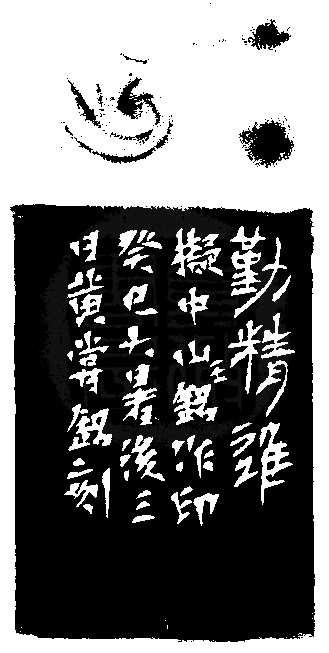 勤精誰
擬中山王銘作印
癸巳大暑後三
日黄嘗銘刻